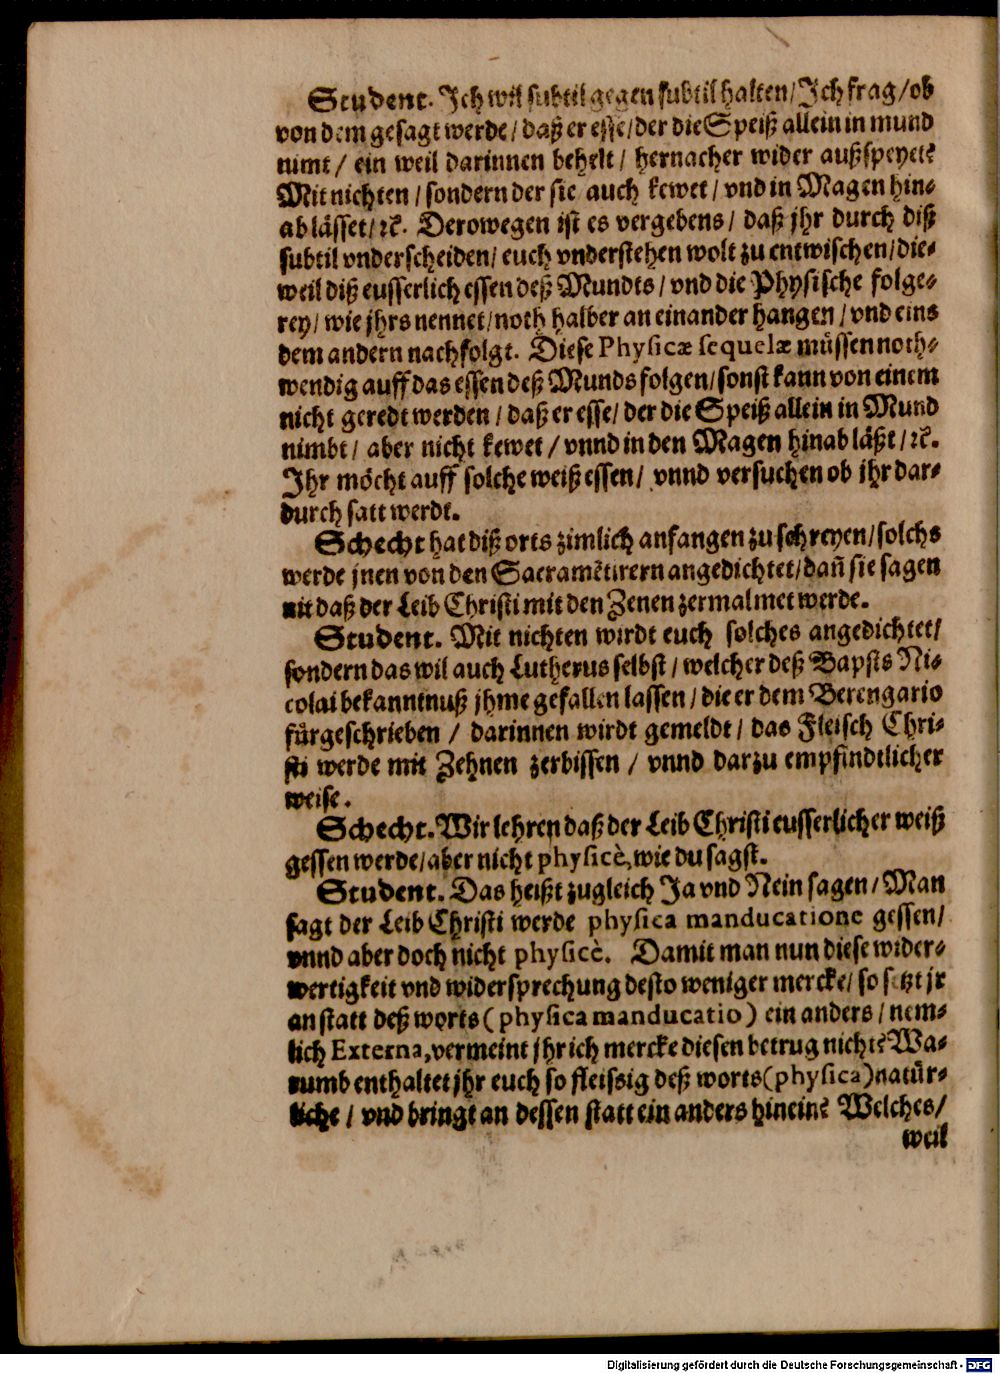 Student. Ich wil subtil gegen subtil halten/ Ich frag/ ob
von dem gesagt werde/ daß er esse/ der die Speiß allein in mund
nimt/ ein weil darinnen behelt/ hernacher wider außspeyet?
Mit nichten/ sondern der sie auch kewet/ vnd in Magen hin-
ab lässet/ ꝛc. Derowegen ist es vergebens/ daß jhr durch diß
subtil vnderscheiden/ euch vnderstehen wolt zu entwischen/ die-
weil diß eusserlich essen deß Mundts/ vnd die Physische folge-
rey/ wie jhrs nennet/ noth halber an einander hangen/ vnd eins
dem andern nachfolgt. Diese Physicæ sequelæ müssen noth-
wendig auff das essen deß Munds folgen/ sonst kann von einem
nicht geredt werden/ daß er esse/ der die Speiß allein in Mund
nimbt/ aber nicht kewet/ vnnd in den Magen hinab läßt/ ꝛc.
Ihr möcht auff solche weiß essen/ vnnd versuchen ob ihr dar-
durch satt werdt.
Schecht hat diß orts zimlich anfangen zu schreyen/ solchs
werde jnen von den Sacramẽtirern angedichtet/ dañ sie sagen
nit daß der Leib Christi mit den Zenen zermalmet werde.
Student. Mit nichten wirdt euch solches angedichtet/
sondern das wil auch Lutherus selbst/ welcher deß Bapsts Ni-
colai bekanntnuß jhme gefallen lassen/ die er dem Berengario
fürgeschrieben/ darinnen wirdt gemeldt/ das Fleisch Chri-
sti werde mit Zehnen zerbissen/ vnnd darzu empfindtlicher
weise.
Schecht. Wir lehren daß der Leib Christi eusserlicher weiß
gessen werde/ aber nicht physicè, wie du sagst.
Student. Das heißt zugleich Ja vnd Nein sagen/ Man
sagt der Leib Christi werde physica manducatione gessen/
vnnd aber doch nicht physicè. Damit man nun diese wider-
wertigkeit vnd widersprechung desto weniger mercke/ so setzt jr
an statt deß worts (physica manducatio) ein anders/ nem-
lich Externa, vermeint jhr ich mercke diesen betrug nicht? Wa-
rumb enthaltet jhr euch so fleissig deß worts (physica) natür-
liche/ vnd bringt an dessen statt ein anders hinein? Welches/
weil
Digitalisierung gefördert durch die Deutsche Forschungsgemeinschaft - DFG